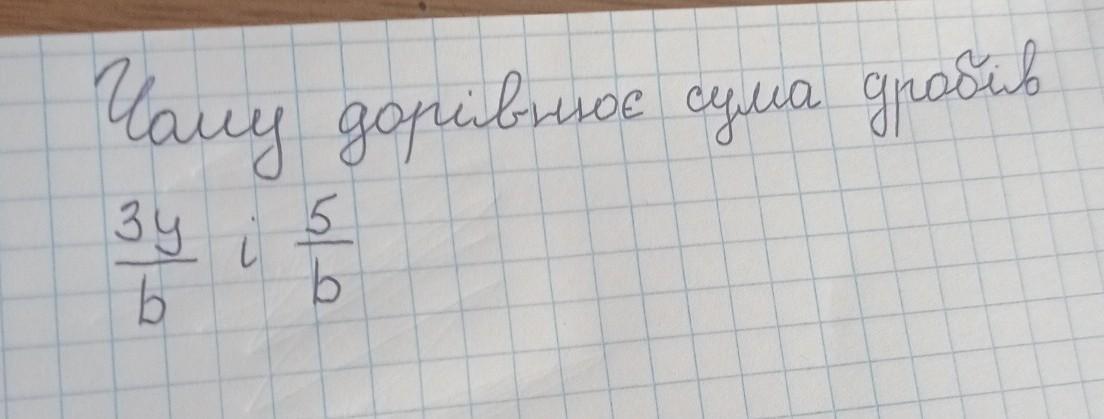 Чому дорівнює сума дробів
3y/b і 5/b